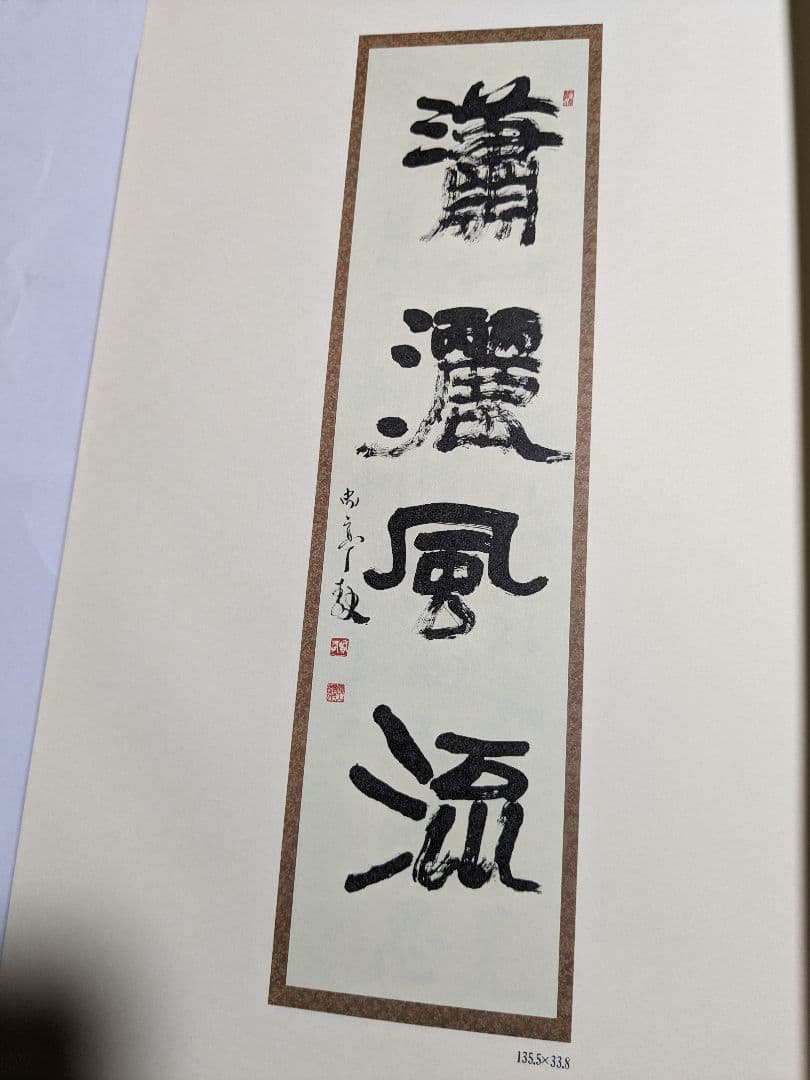 瀟灑風流
135.5×33.8